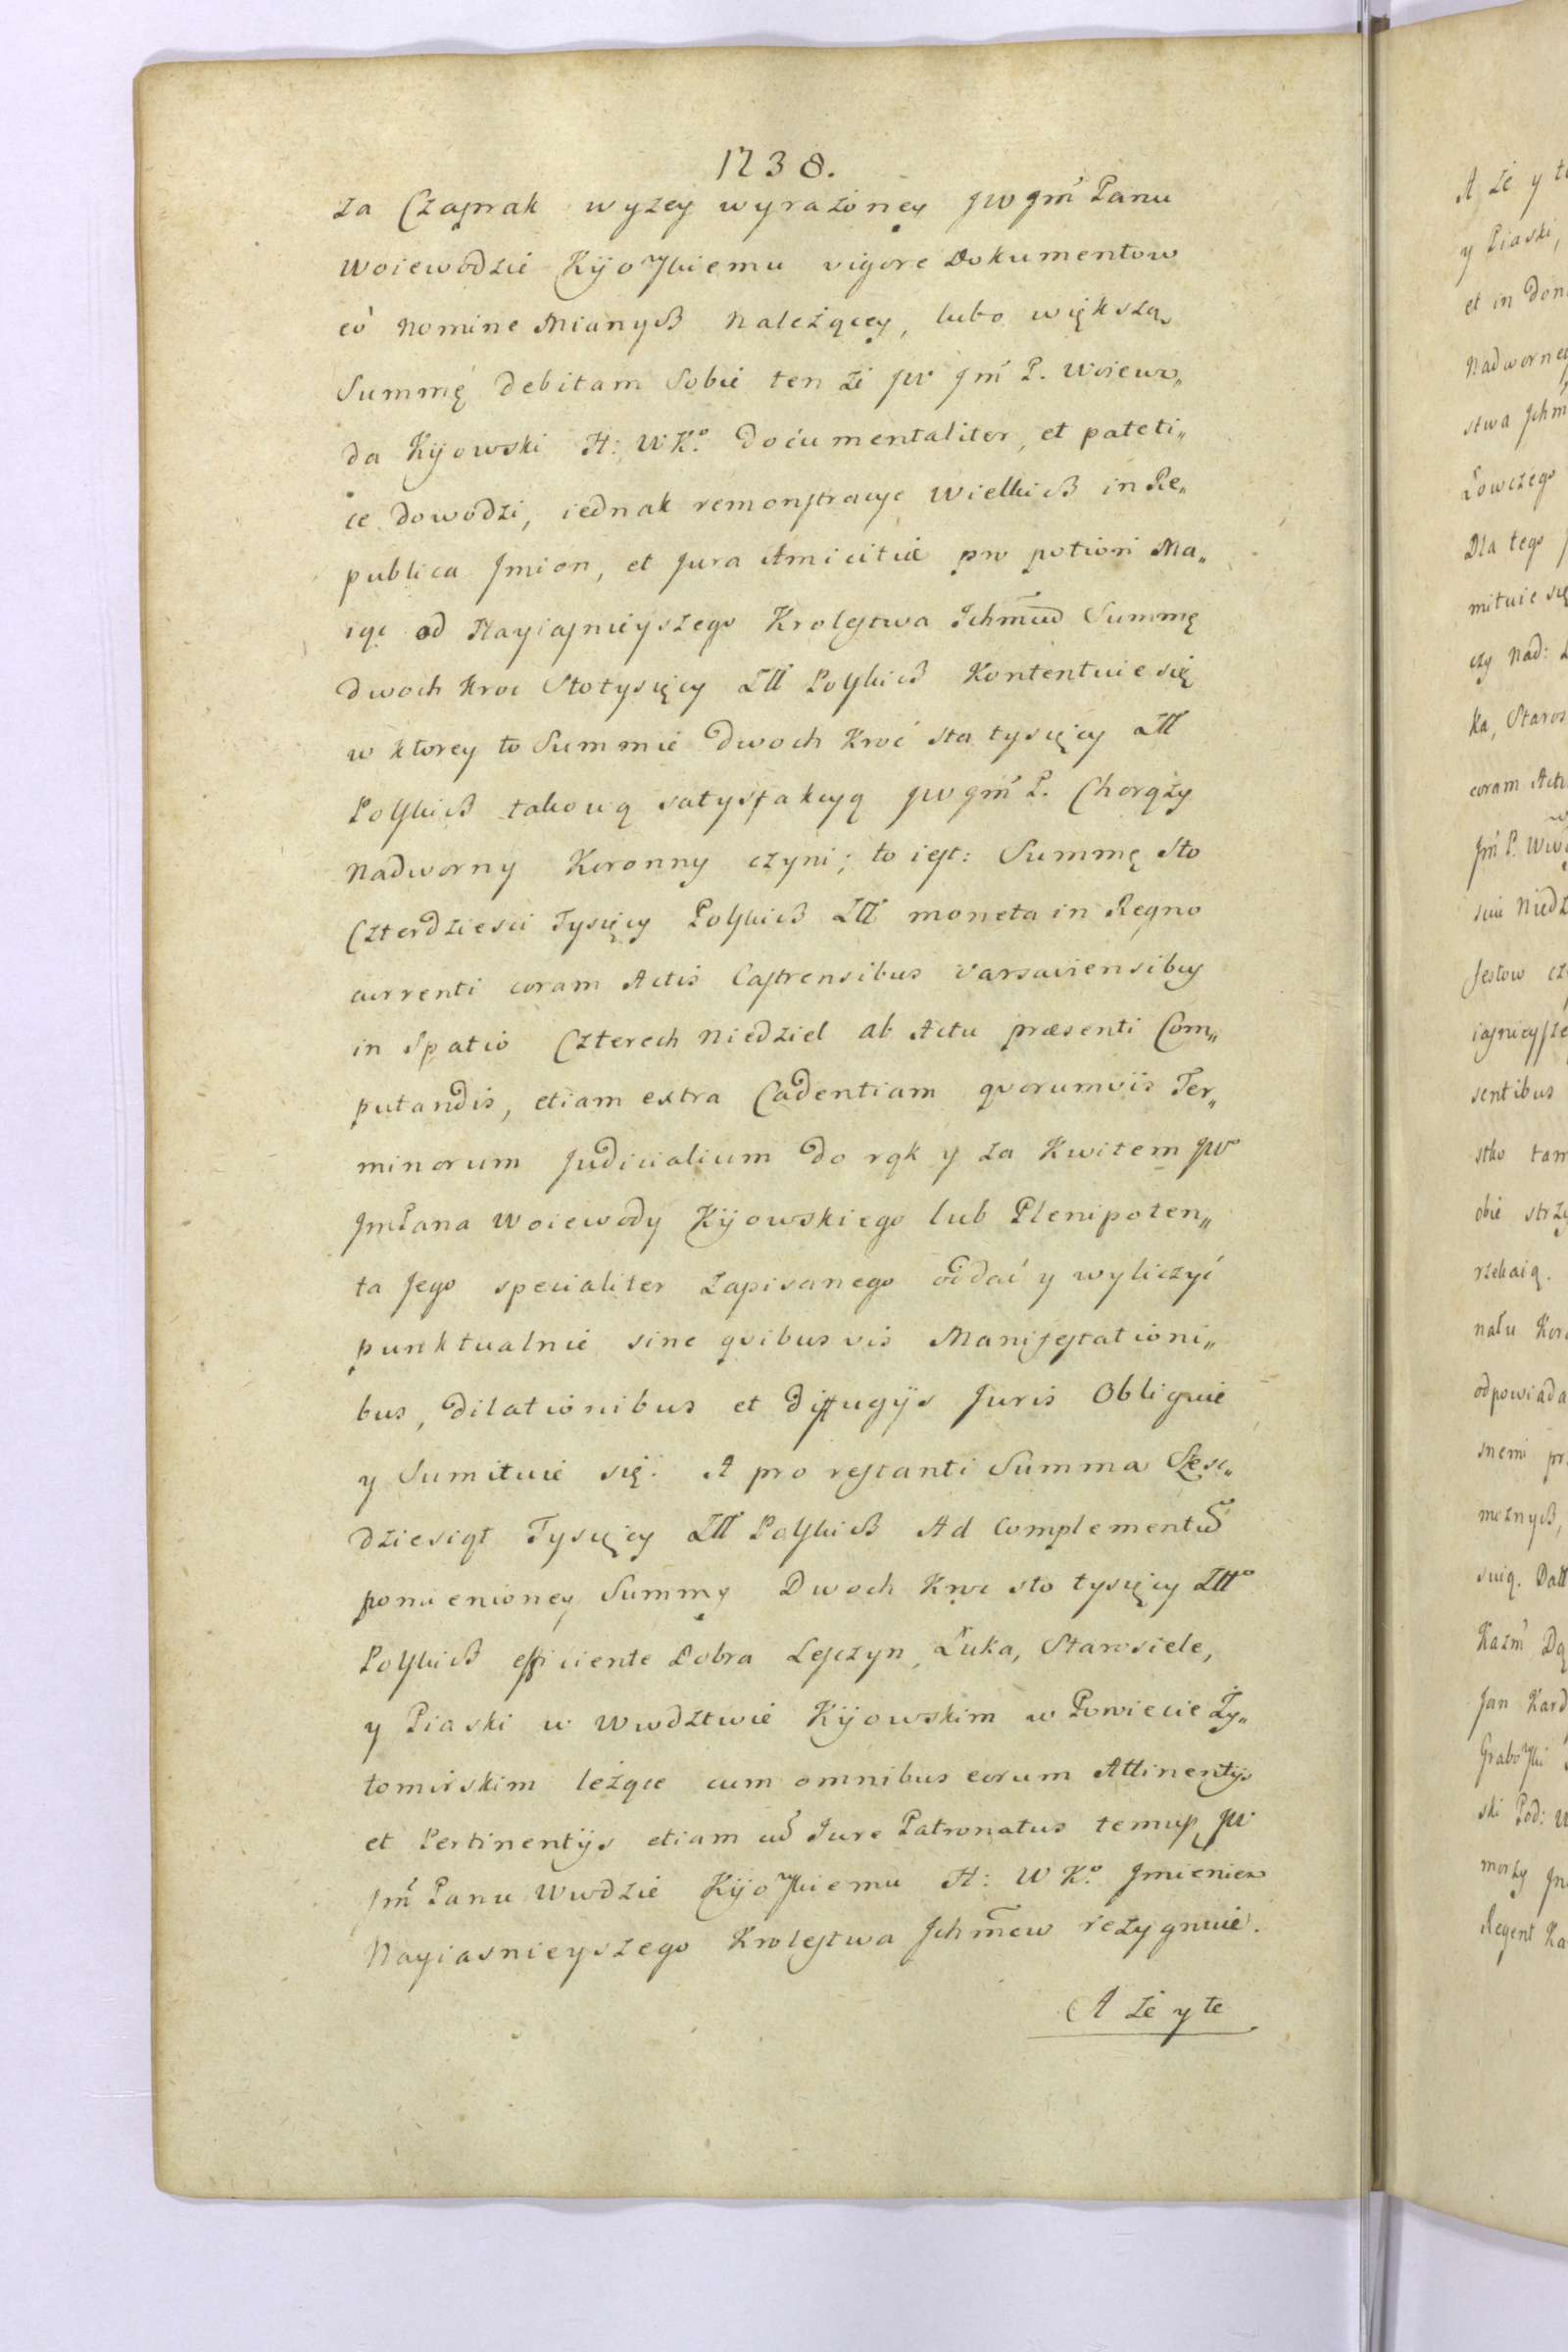 1738.
za Czaprak wyzey wyrażoney JW Jm̃ Panu
Woiewodzie Kijowskiemu vigore Dokumentow
eò nomine Mianych należącey, lubo większą
Summę debitam Sobie ten że JW Jm̃ P. Woiewo„
da Kijowski H: WKº documentaliter, et pateti„
ce dowodzi, iednak remonstracye Wielkich in Re„
publica Jmion, et Jura Amicitiæ pro potiori Ma„
iąc od Nayiasnieyszego Krolestwa Ichm̃ciow Summę
dwoch kroc Stotysięcy Złł Polskich Kontentuie się
w ktorey to Summie dwoch kroć sta tysięcy Złł
Polskich takową satysfakcyą JW Jm̃ P. Chorąży
Nadworny Koronny czyni; to iest: Summę Sto
Czterdziesci Tysięcy Polskich Złł moneta in Regno
currenti coram Actis Castrensibus Varsaviensibus
in Spatio Czterech Niedziel ab Actu præsenti Com„
putandis, etiam extra Cadentiam qvorumvis Ter„
minorum Judicialium do rąk y za Kwitem JW
JmPana Woiewody Kijowskiego lub Plenipoten„
ta Jego specialiter Zapisanego oddać y wyliczyć
punktualnie sine qvibusvis Manifestationi„
bus, dilationibus et diffugijs Juris Obliguie
y Sumituie się. A pro restanti Summa Szesc„
dziesiąt Tysięcy Złł Polskich Ad Complementũ
pomienioney Summy Dwoch Kroc sto tysięcy Złł
Polskich efficiente Dobra Leszczyn, Łuka, Starosiele,
y Piaski w Wwdztwie Kijowskim w Powiecie Ży„
tomirskim leżące cum omnibus eorum Attinentijs
et Pertinentijs etiam cũ Jure Patronatus temuż JW
Jm̃ Panu Wwdzie Kijowskiemu H: W Kº Jmieniem
Nayiasnieyszego Krolestwa Jchm̃ciow rezygnuie.
A że y te
A że y te
y Piaski,
et in
Nadwornego
stwa
Łowczego
Dla tego
mituie się
czy Nad:
ka, Staros
coram Act
Jm̃ P.
iasnieysze
sentibus
obie
nału
odpowiada
możnych,
Jan
ski Pod:
Regent